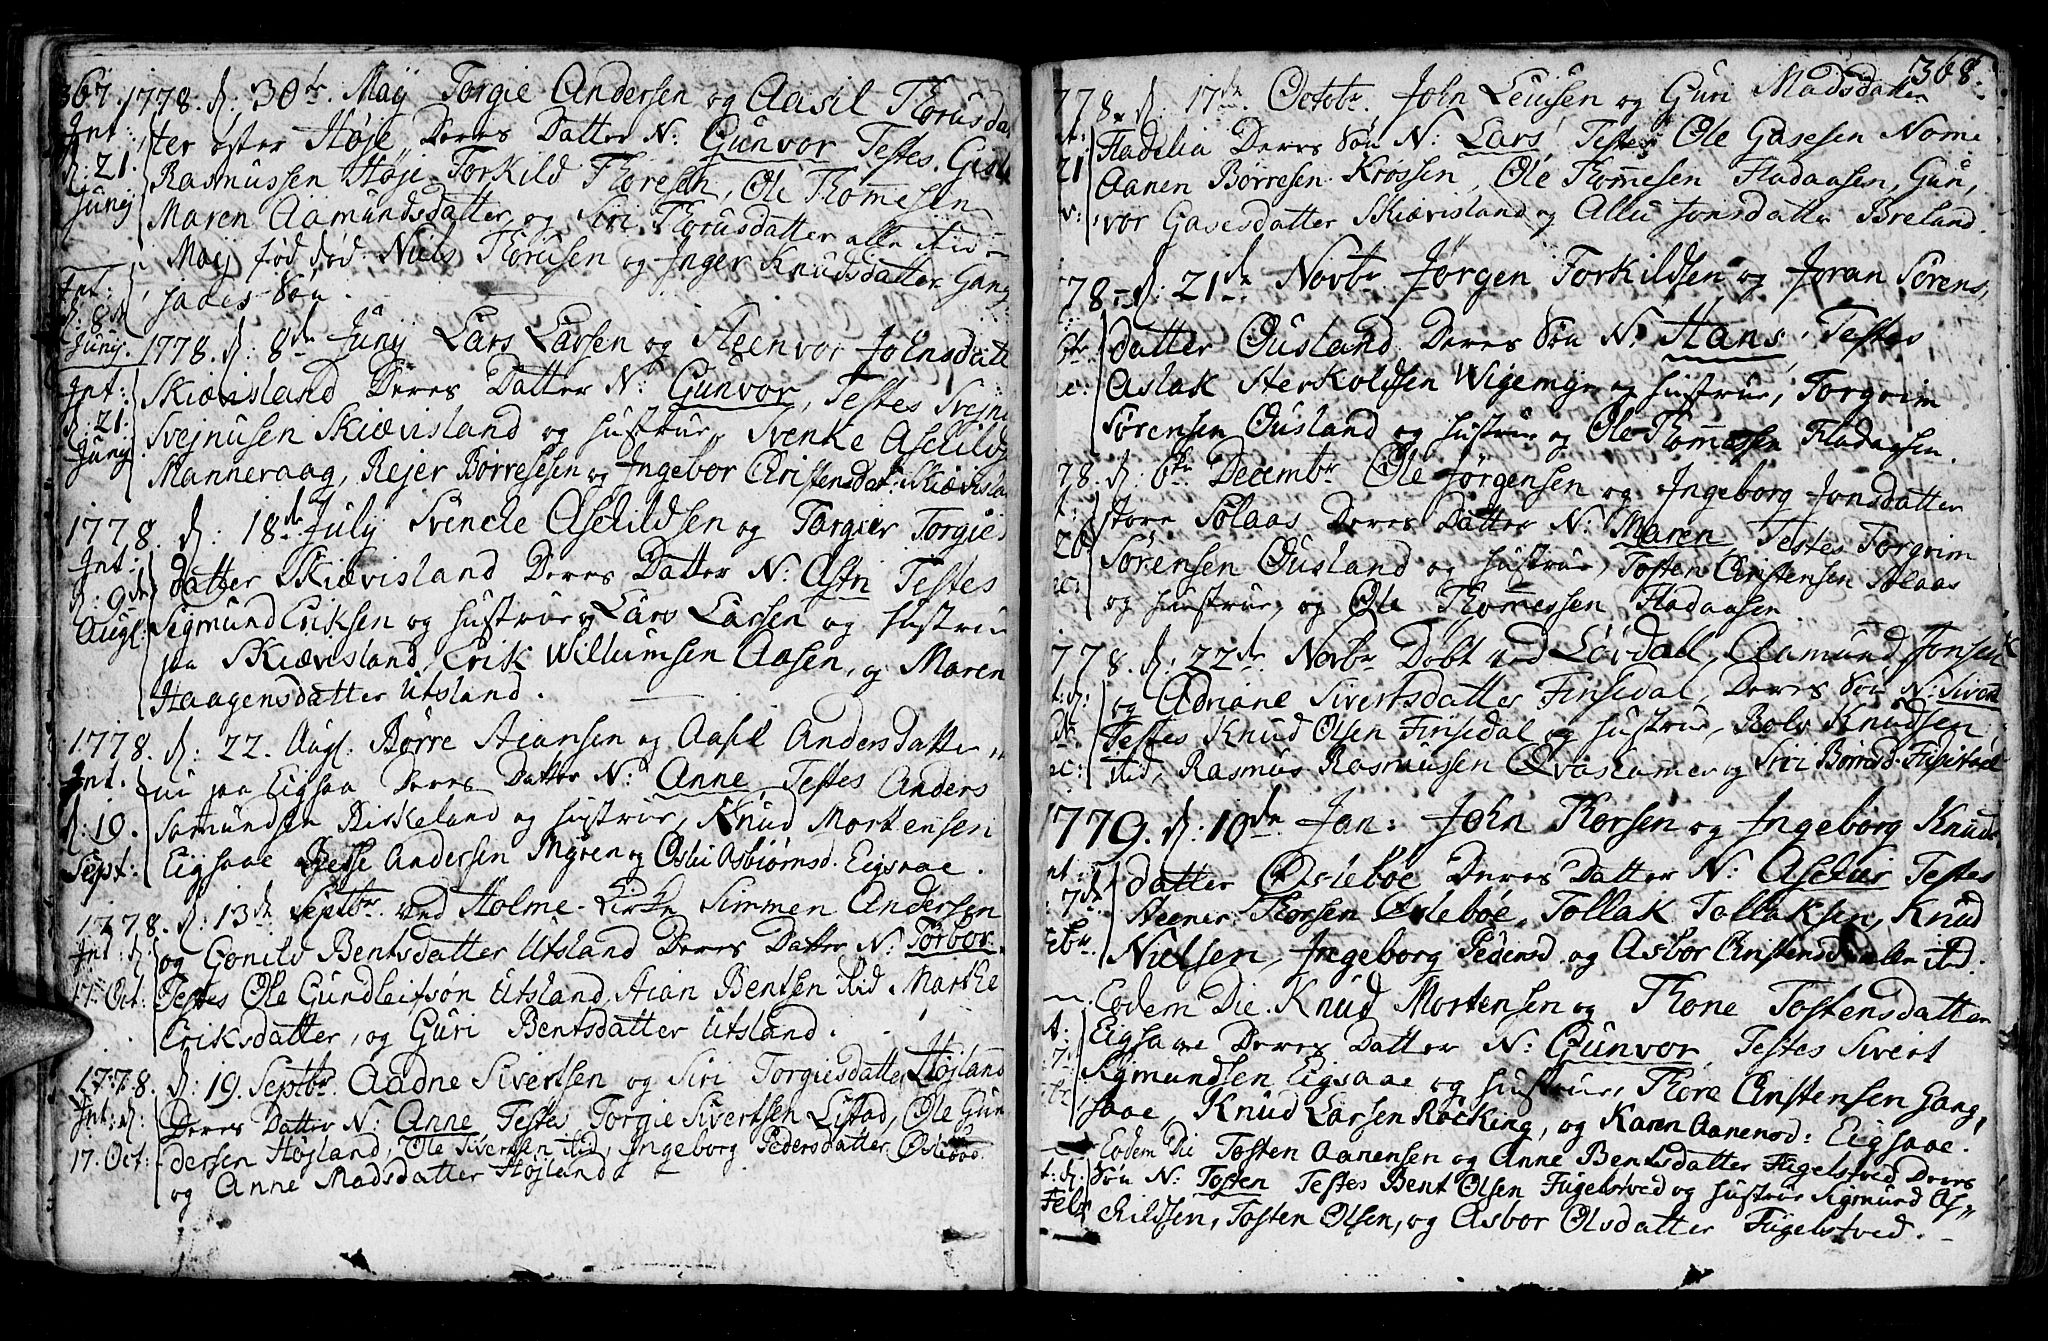 367. 1778. d: 30te Maij Torgie Andersen og Aasil Thorusdat
Int: ter øster Høje, Deres Datter N: Gunvor Testes. Gisle
d: 21. Rasmussen Høje Torkild Thoresen, Ole Thomesen
Junij Maren Aamundsdatter og Siri Thorusdatter alle
Maij fød død Niels Thorusen og Inger Knudsdatter Gang
Int: saaes Søn.
d: 8de
Junij. 1778. d: 8de Junij Lars Larsen og Steenvor Johnsdatt
Int: Skiævisland Deres Datter N: Gunvor, Testes Svejnu
d: 21. Svejnusen Skiævisland og hustrue, Svenke Aschilds
Junij Manneraag, Rejer Børresesen og Ingebor Christensdat: Skiævisla
1778. d: 18de Julij Svencke Aschildsen og Torgier Torgies
Int: datter Skiævisland Deres Datter N: Astri Testes
d: 9de Sigmund Eriksen og hustrue, Lars Larsen og hustrue
Augl: paa Skiævisland, Erik Willumsen Aasen, og Maren
Haagensdatter Utsland.
1778. d: 22. Augl. Børre Stiansen og Aasil Andersdatter
Int. ni paa Eigsaa Deres Datter N: Anne, Testes Anders
d: 19. Samundsen Birkeland og hustrue, Knud Mortensen
Sept: Eigsaae Andersen Myren og Osbiørnsd. Eigsaae.
1778. d: 13de Septbr. ved Holme-Kirke Simmen Andersen
Int: d: og Gonild Bentsdatter Utsland Deres Datter N: Torbor.
17. Oct: Testes Ole Gundleifsøn Utsland, Stian Bentsen ibid Marthe
Eriksdatter, og Guri Bentsdatter Utsland.
1778. d: 19. Septbr. Aadne Sivertsen og Siri Torgiesdatter Højland
Int: d: Deres Datter N: Anne Testes Torgie Sivertsen Listad, Ole Gun
17. Oct: dersen Højland, Ole Sivertsen ibid, Ingeborg Pedersdatter Oslebøe
og Anne Madsdatter Højland.
368.
778. d: 17de Octobr. John Leulsen og Guri Madsdatter
Fladelia Deres Søn N: Lars, Testes Ole Gasesen Nome
21 Aanen Børresen Krossen, Ole Thomesen Fladaasen, Gun,
v: vor Gasesdatter Skiævisland og Jonsdatter Breland.
78 d: 21de Novbr Jørgen Torkildsen og Joran Sørens,
datter Ousland Deres Søn N: Hans, Testes
Aslak Sterkoldsen Wigemyr og hustrue, Torgrim
Sørensen Ousland og hustrue og Ole Thomessen Fladaasen.
78. d: 6te Decembr Ole Jørgensen og Ingeborg Jonsdatter
store Solaas Deres Datter N: Maren Testes Torgrim
20 Sørensen Ousland og hustrue, Tosten Christensen Solaas
og hustrue, og Ole Thomessen Fladaasen
778. d: 22de Novbr Døbt ved Løvdal, Aamund Jonsen
og Adriane Sivertsdatter Finsedal, Deres Søn N: Sivert
Testes Knud Olsen Finsedal og hustrue, Rolv Knudsen
ibid, Rasmus Rasmussen Qvascamer og Siri Børresd.
1779. d: 10de Jan: John Thorsen og Ingeborg Knuds
nt: datter Oslebøe Deres Datter N: Testes
7de Steener Thorsen Oslebøe, Tollak Tollaksen, Knud
Febr Nielsen, Ingeborg Pedersd. og Asbor Christensd. alle ibid.
Eodem Die Knud Mortensen og Thone Tostensdatter
Eigsaae Deres Datter N: Gunvor, Testes Sivert
7de Sigmundsen Eigsaae og hustrue, Thore Christensen Gang,
saae, Knud Larsen Røcking, og Karen Aanensd: Eigsaae.
Eodem Die Tosten Aanensen og Anne Bentsdatter Fugelstved Deres
t: d: Søn N: Tosten Testes Bent Olsen Fugelstved og hustrue Sigmund As,,
Febr childsen, Tosten Olsen, og Asbor Olsdatter Fugelstved.